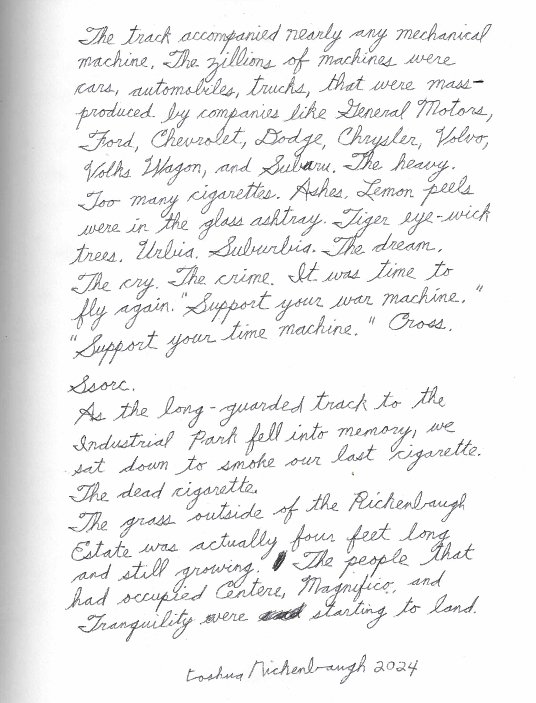 The track accompanied nearly any mechanical
machine. The zillions of machines were
cars, automobiles, trucks, that were mass-
produced by companies like General Motors,
Ford, Chevrolet, Dodge, Chrysler, Volvo,
Volks Wagon, and Subaru. The heavy.
Too many cigarettes. Ashes. Lemon peels
were in the glass ashtray. Tiger eye-wick
trees. Urbia. Suburbia. The dream.
The cry. The crime. It was time to
fly again. "Support your war machine."
"Support your time machine." Cross.
Ssorc.
As the long-guarded track to the
Industrial Park fell into memory, we
sat down to smoke our last cigarette.
The dead cigarette.
The grass outside of the Richenbaugh
Estate was actually four feet long
and still growing. The people that
had occupied Centere, Magnifico, and
Tranquility were starting to land.
Richenbaugh 2024